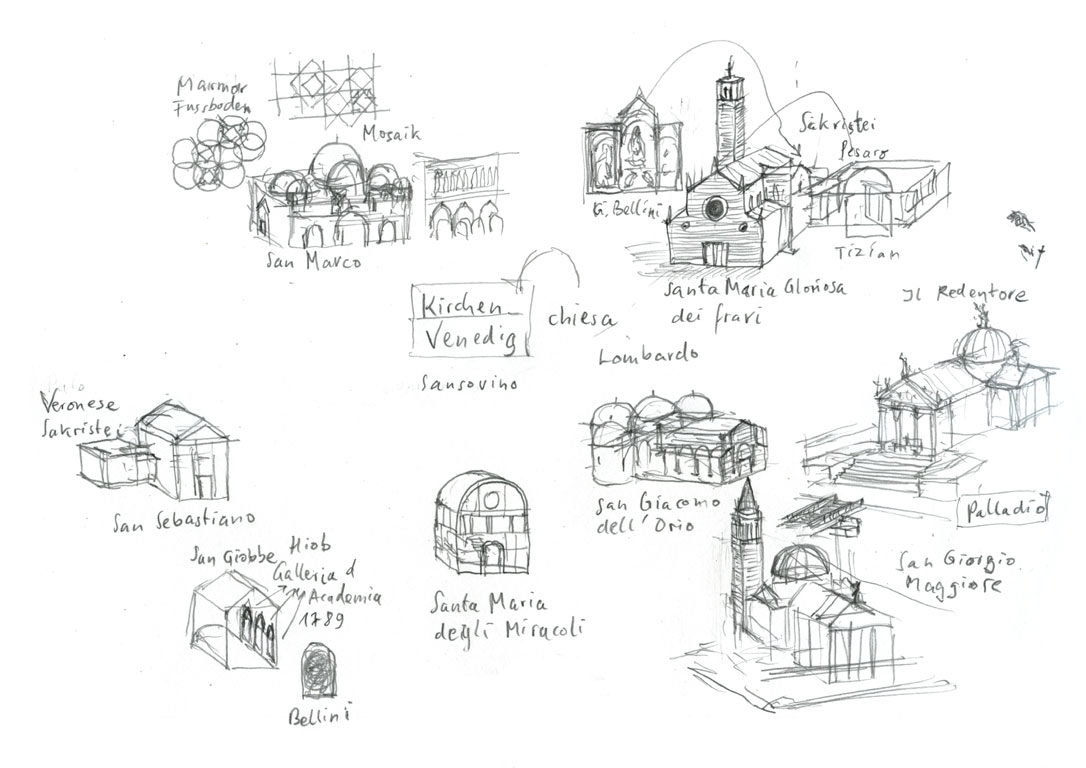 Marmor
Fussboden
Mosaik
San Marco
G. Bellini
Sakristei
Pesaro
Tizian
Santa Maria Gloriosa
dei frari
Kirchen
Venedig
chiesa
Sansovino
Lombardo
Il Redentore
Veronese
Sakristei
San Sebastiano
San Giobbe
Hiob
Galleria d
Academia
1789
Bellini
Santa Maria
degli Miracoli
San Giacomo
dell' Orio
Palladio
San Giorgio
Maggiore